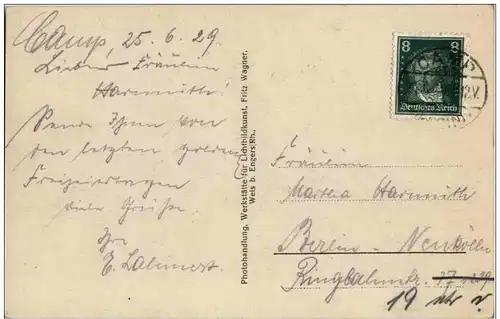 Camp, 25. 6. 29.
Liebes Fräulein
Harmuth!
Sende Ihnen von
den letzten goldenen
Freizeittagen
viele Grüße.
Ihr
E.
Photohandlung, Werkstätte für Lichtbildkunst, Fritz Wagner,
Weis b. Engers/Rh.
8 8
Deutsches Reich
CAMP
Fräulein
Martha Harmuth
Berlin-Neukölln
Ringbahnstr.
19